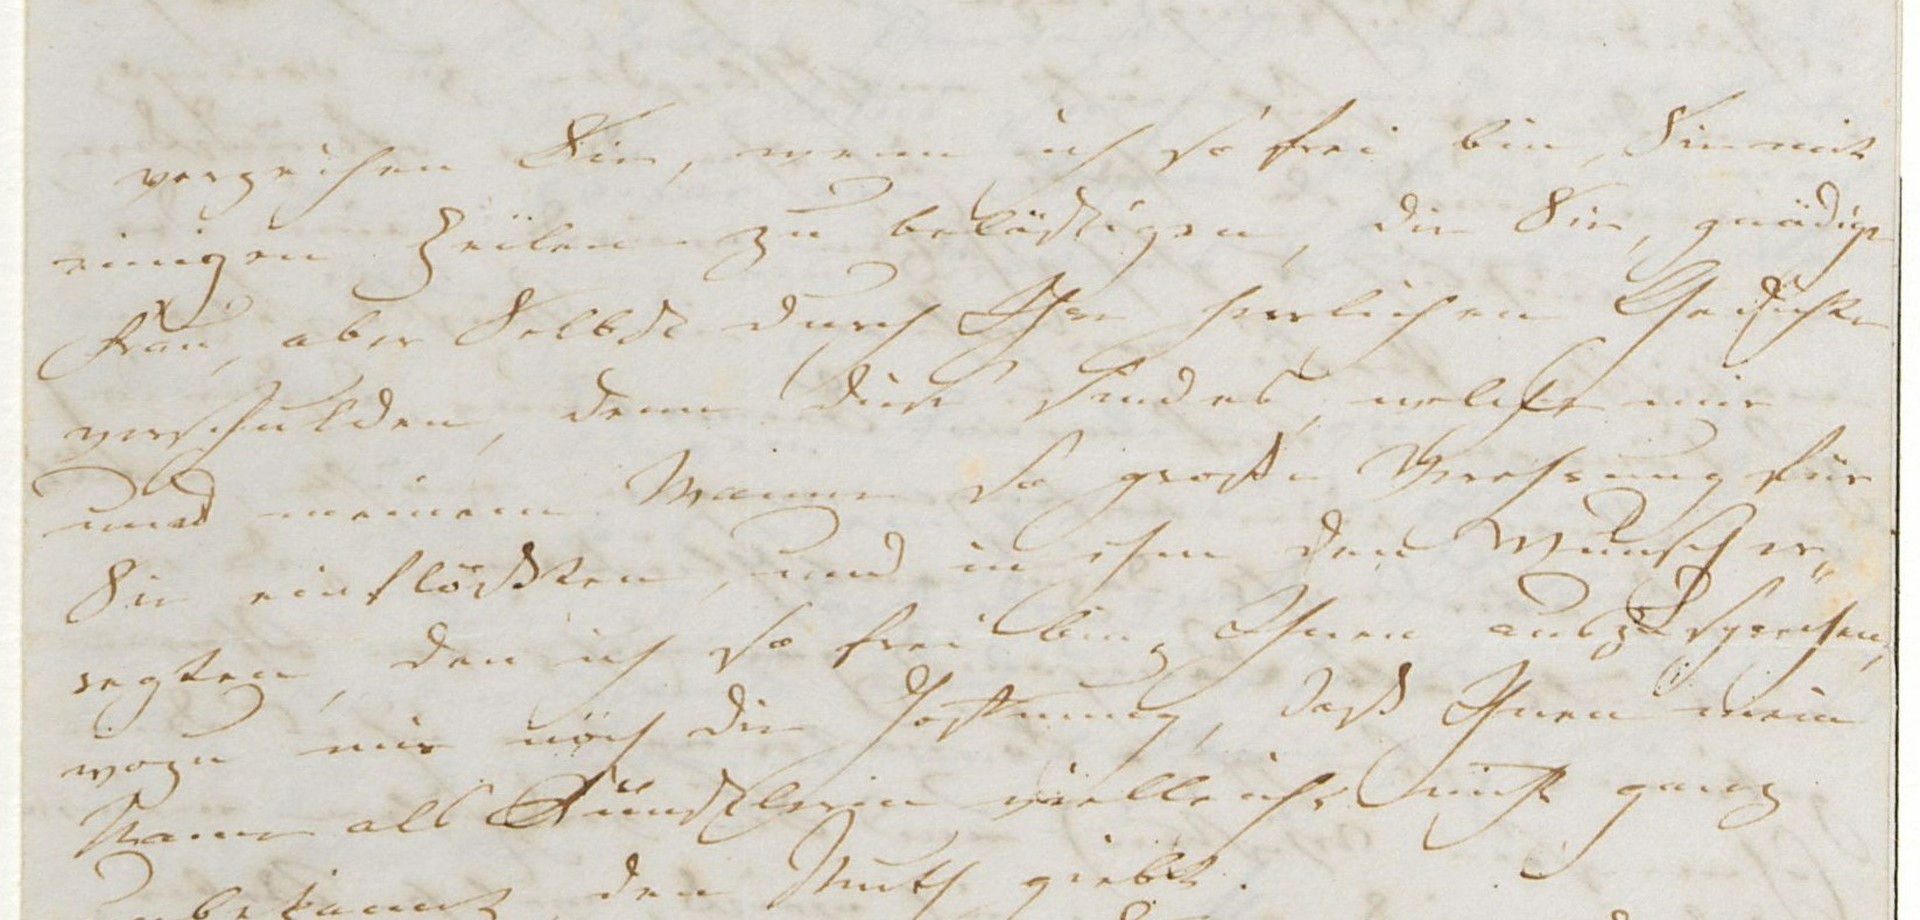 verzeihen Sie, wenn ich so frei bin, Sie mit
einigen Zeilen zu belästigen, die Sie, gnädige
Frau, aber Selbst durch Ihre herrlichen Gedichte
verschulden, denn diese sind es, welche mir
und meinem Manne so große Verehrung für
Sie einflößten, und in ihm den Wunsch er„
regten, den ich so frei bin, Ihnen auszusprechen,
wozu mir noch die Hoffnung, daß Ihnen mein
Name als Künstlerin vielleicht nicht ganz
unbekannt, den Muth giebt.